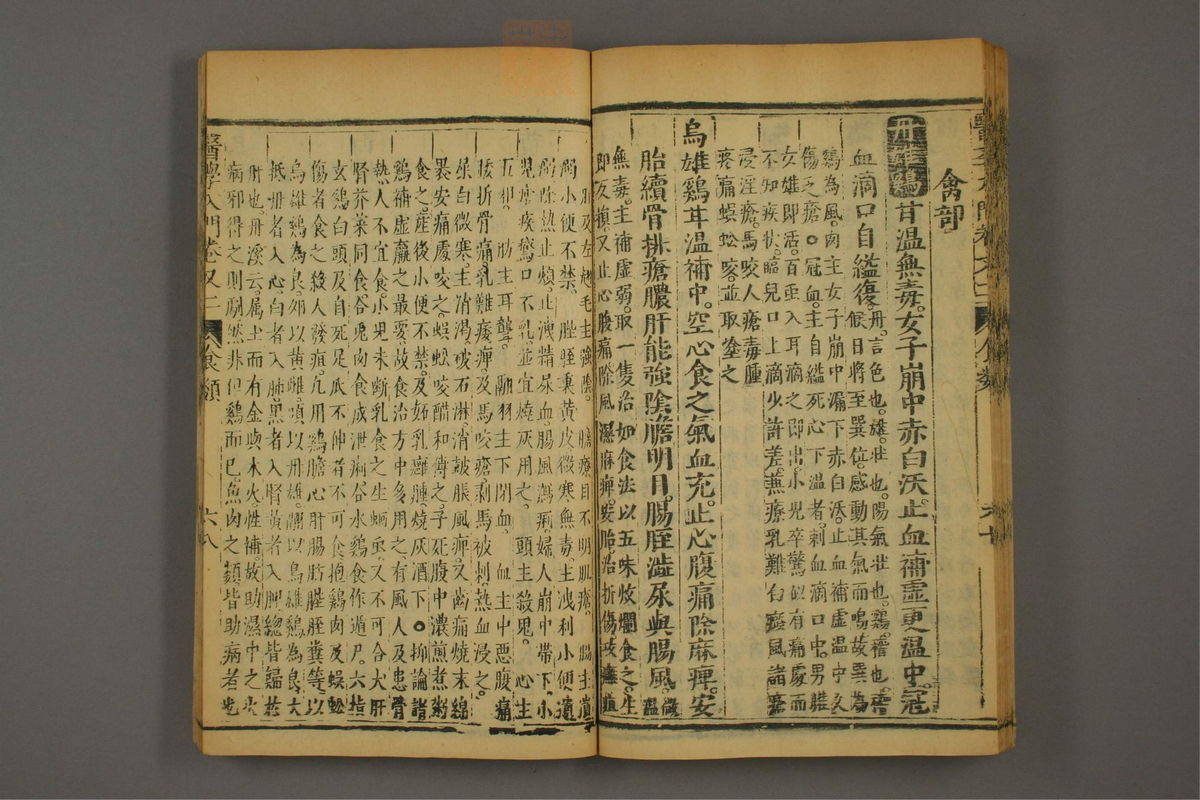 禽部
丹雄鷄甘溫無毒女子崩中赤白沃止血補虛更溫中冠
血滴口自縊復丹言色也雄壯也陽氣壯也鷄稽也
候日將至巽位感動其氣而鳴故巽為
鷄為風肉主女子崩中漏下赤白沃止血補虛溫中久
傷乏瘡○冠血主自縊死心下溫者刺血滴口中男雌
女雄即活百虫入耳滴之即出小兒卒驚似有痛處而
不知疾狀臨兒口上滴少許差兼療乳難白癜風諸瘡
浸淫瘡馬咬人瘡毒腫
疼痛蜈蚣咬並取塗之
烏雄鷄甘溫補中空心食之氣血充止心腹痛除麻痺安
胎續骨排瘡膿肝能強陰膽明目腸胵澁尿與腸風微溫
無毒主補虛弱取一隻治如食法以五味炆爛食之生
即反損又止心腹痛除風濕麻痺安胎治折傷
肝及左翅毛主強陰膽療目不明肌瘡腸主遺
溺小便不禁胵䏶裏黃皮微寒無毒主洩利小便遺
溺除熱止煩止洩精尿血腸風瀉痢婦人崩中帶下小
兒瘧疾鵞口不乳並宜燒灰用之頭主殺鬼心主
五邪肪主耳聾翮羽主下閉血血主中惡腹痛
踒折骨痛乳難痿痺及馬咬瘡剝馬被刺熱血浸之
尿白微寒主消渴破石淋消皷脹風痺又齒痛燒末綿
裹安痛處咬之蜈蚣咬醋和傅之子死腹中濃煎煮粥
食之產後小便不禁及妬乳癰腫燒灰酒下○抑論諸
鷄補虛羸之最要故食治方中多用之有風人及患骨
熱人不宜食小兒未斷乳食之生蛔虫又不可合犬肝
腎芥菜同食合兎肉食成泄痢合水鷄食作遁尸六指
玄鷄白頭及自死足爪不伸者不可食抱鷄肉及蜈蚣
傷者食之殺人發疽凢用鷄膽心肝腸肪胵䏶糞等以
烏雄鷄為良卵以黃雌頭以丹雄翮以烏雄鷄為良大
抵丹者入心白者入肺黑者入腎黃者入脾總皆歸於
肝也丹溪云属土而有金與木火性補故助濕中之火
病邪得之則劇然非但鷄而已魚肉之類皆助病者也
醫學入門卷又二
食類
六八